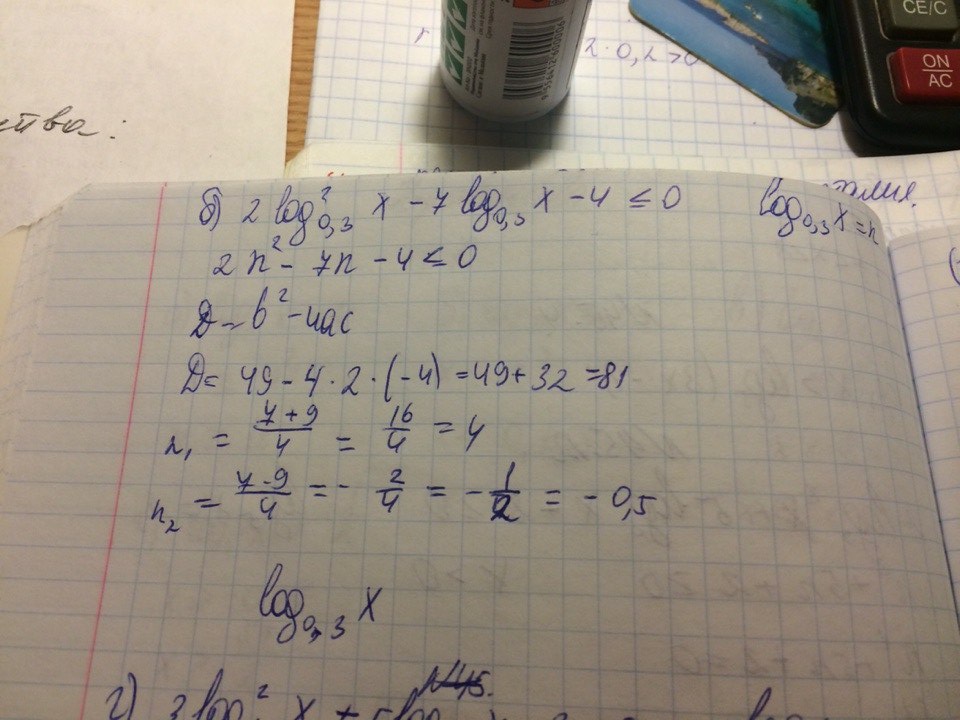 ства:
2·0,2>0
CE/C
ON/AC
б) 2 log²₀,₃ x − 7 log₀,₃ x − 4 ≤ 0
log₀,₃ x = n
2n² − 7n − 4 ≤ 0
D = b² − 4ac
D = 49 − 4·2·(−4) = 49 + 32 = 81
n₁ = (7+9)/4 = 16/4 = 4
n₂ = (7−9)/4 = − 2/4 = − 1/2 = − 0,5
log₀,₃ x
г)